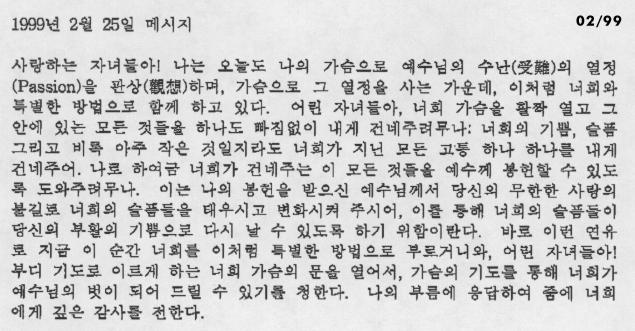 1999년 2월 25일 메시지
02/99
사랑하는 자녀들아! 나는 오늘도 나의 가슴으로 예수님의 수난(受難)의 열정
(Passion)을 관상(觀想)하며, 가슴으로 그 열정을 사는 가운데, 이처럼 너희와
특별한 방법으로 함께 하고 있다. 어린 자녀들아, 너희 가슴을 활짝 열고 그
안에 있는 모든 것들을 하나도 빠짐없이 내게 건네주려무나; 너희의 기쁨, 슬픔
그리고 비록 아주 작은 것일지라도 너희가 지닌 모든 고통 하나 하나를 내게
건네주어. 나로 하여금 너희가 건네주는 이 모든 것들을 예수께 봉헌할 수 있도
록 도와주려무나. 이는 나의 봉헌을 받으신 예수님께서 당신의 무한한 사랑의
불길로 너희의 슬픔들을 태우시고 변화시켜 주시어, 이를 통해 너희의 슬픔들이
당신의 부활의 기쁨으로 다시 날 수 있도록 하기 위함이란다. 바로 이런 연유
로 지금 이 순간 너희를 이처럼 특별한 방법으로 부르거니와, 어린 자녀들아!
부디 기도로 이르게 하는 너희 가슴의 문을 열어서, 가슴의 기도를 통해 너희가
예수님의 벗이 되어 드릴 수 있기를 청한다. 나의 부름에 응답하여 줌에 너희
에게 깊은 감사를 전한다.